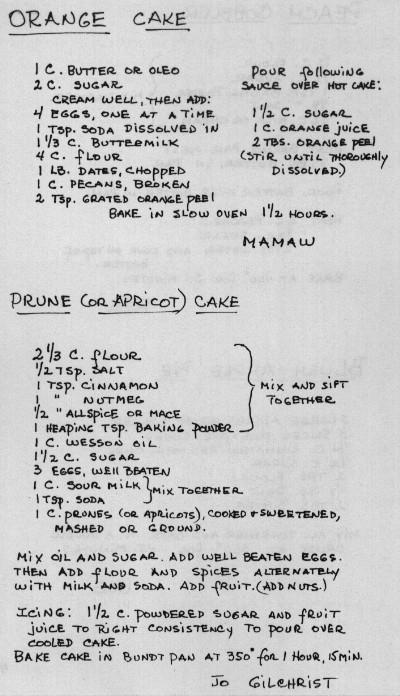 ORANGE CAKE
1 C. BUTTER OR OLEO
2 C. SUGAR
CREAM WELL, THEN ADD:
4 EGGS, ONE AT A TIME
1 TSP. SODA DISSOLVED IN
1 1/3 C. BUTTERMILK
4 C. FLOUR
1 LB. DATES, CHOPPED
1 C. PECANS, BROKEN
2 TSP. GRATED ORANGE PEEL
BAKE IN SLOW OVEN 1 1/2 HOURS.
POUR FOLLOWING
SAUCE OVER HOT CAKE:
1 1/2 C. SUGAR
1 C. ORANGE JUICE
2 TBS. ORANGE PEEL
(STIR UNTIL THOROUGHLY
DISSOLVED.)
MAMAW
PRUNE (OR APRICOT) CAKE
2 1/3 C. FLOUR
1/2 TSP. SALT
1 TSP. CINNAMON
1 " NUTMEG
1/2 " ALLSPICE OR MACE
1 HEAPING TSP. BAKING POWDER
MIX AND SIFT
TOGETHER
1 C. WESSON OIL
1 1/2 C. SUGAR
3 EGGS, WELL BEATEN
1 C. SOUR MILK
1 TSP. SODA
MIX TOGETHER
1 C. PRUNES (OR APRICOTS), COOKED & SWEETENED,
MASHED OR GROUND.
MIX OIL AND SUGAR. ADD WELL BEATEN EGGS.
THEN ADD FLOUR AND SPICES ALTERNATELY
WITH MILK AND SODA. ADD FRUIT. (ADD NUTS.)
ICING: 1 1/2 C. POWDERED SUGAR AND FRUIT
JUICE TO RIGHT CONSISTENCY TO POUR OVER
COOLED CAKE.
BAKE CAKE IN BUNDT PAN AT 350° FOR 1 HOUR, 15 MIN.
JO GILCHRIST